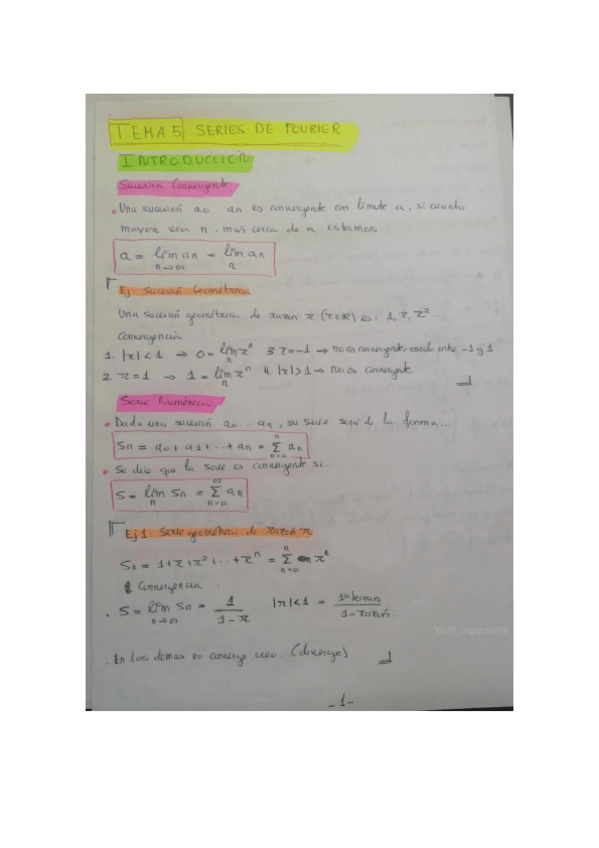 TEMA 5 SERIES DE FOURIER
INTRODUCCIÓN
Sucesión Convergente
• Una sucesión a0 ... an es convergente con límite a, si cuanto
mayor sea n, mas cerca de a estamos.
a = lim an = lim an
n→∞ n
Ej Sucesión Geométrica
Una sucesión geométrica de razón r (r∈ℝ) es: 1, r, r² ...
Convergencia
1. |r| < 1 → 0 = lim rⁿ 3 r = -1 → no es convergente oscila entre -1 y 1
n
2 r = 1 → 1 = lim rⁿ 4. |r| > 1 → No es convergente
n
Serie Numérica
• Dada una sucesión a0 ... an, su serie será de la forma...
Sn = a0 + a1 + ... + an = Σ an
n=0 n
• Se dice que la serie es convergente si...
S = lim Sn = Σ an
n n=0 ∞
Ej 1: Serie geométrica de razón r
Sn = 1 + r + r² + ... + rⁿ = Σ r
n=0 n
Convergencia
. S = lim Sn = 1/(1-r) |r| < 1 = 1º término/(1-razón).
n→∞
. En los demas no converge (diverge)
Wolf_ingenieros
-1-